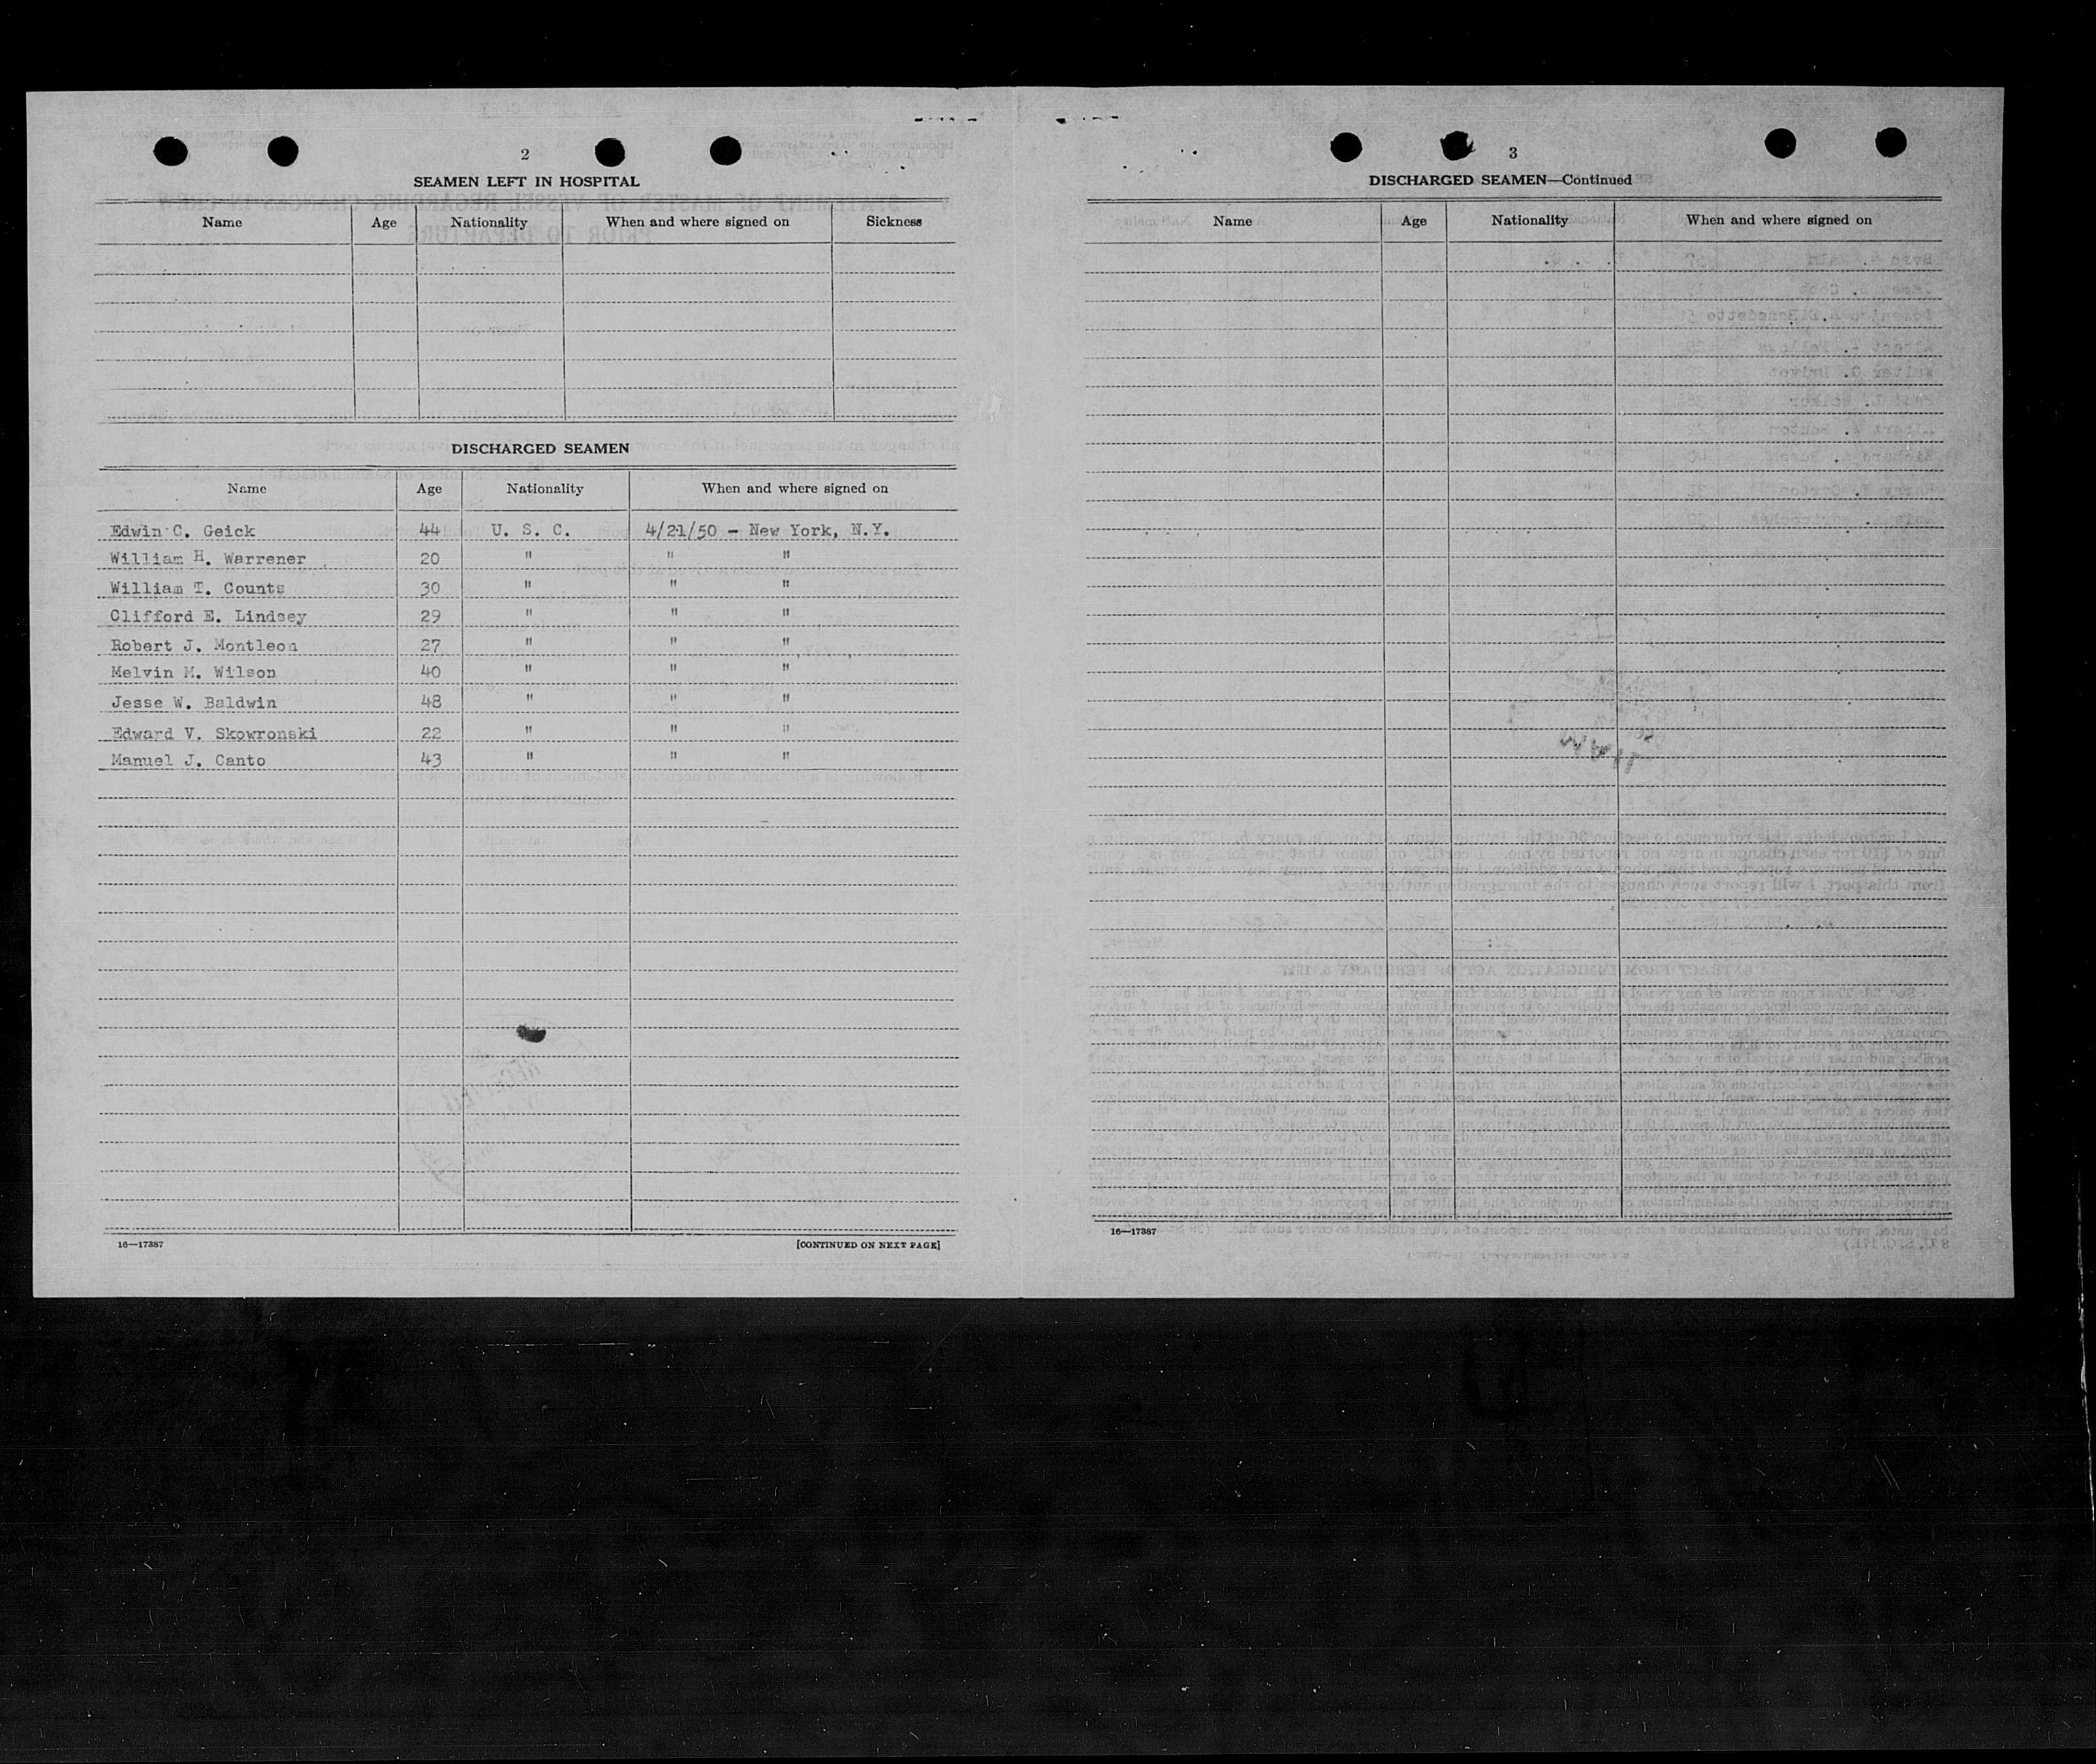 2
SEAMEN LEFT IN HOSPITAL
Name Age Nationality When and where signed on Sickness
DISCHARGED SEAMEN
Name Age Nationality When and where signed on
Edwin C. Geick 44 U. S. C. 4/21/50 - New York, N.Y.
William H. Warrener 20 " " "
William T. Counts 30 " " "
Clifford E. Lindsey 29 " " "
Robert J. Montleon 27 " " "
Melvin M. Wilson 40 " " "
Jesse W. Baldwin 48 " " "
Edward V. Skowronski 22 " " "
Manuel J. Canto 43 " " "
16—17387 [CONTINUED ON NEXT PAGE]
3
DISCHARGED SEAMEN—Continued
Name Age Nationality When and where signed on
16—17387